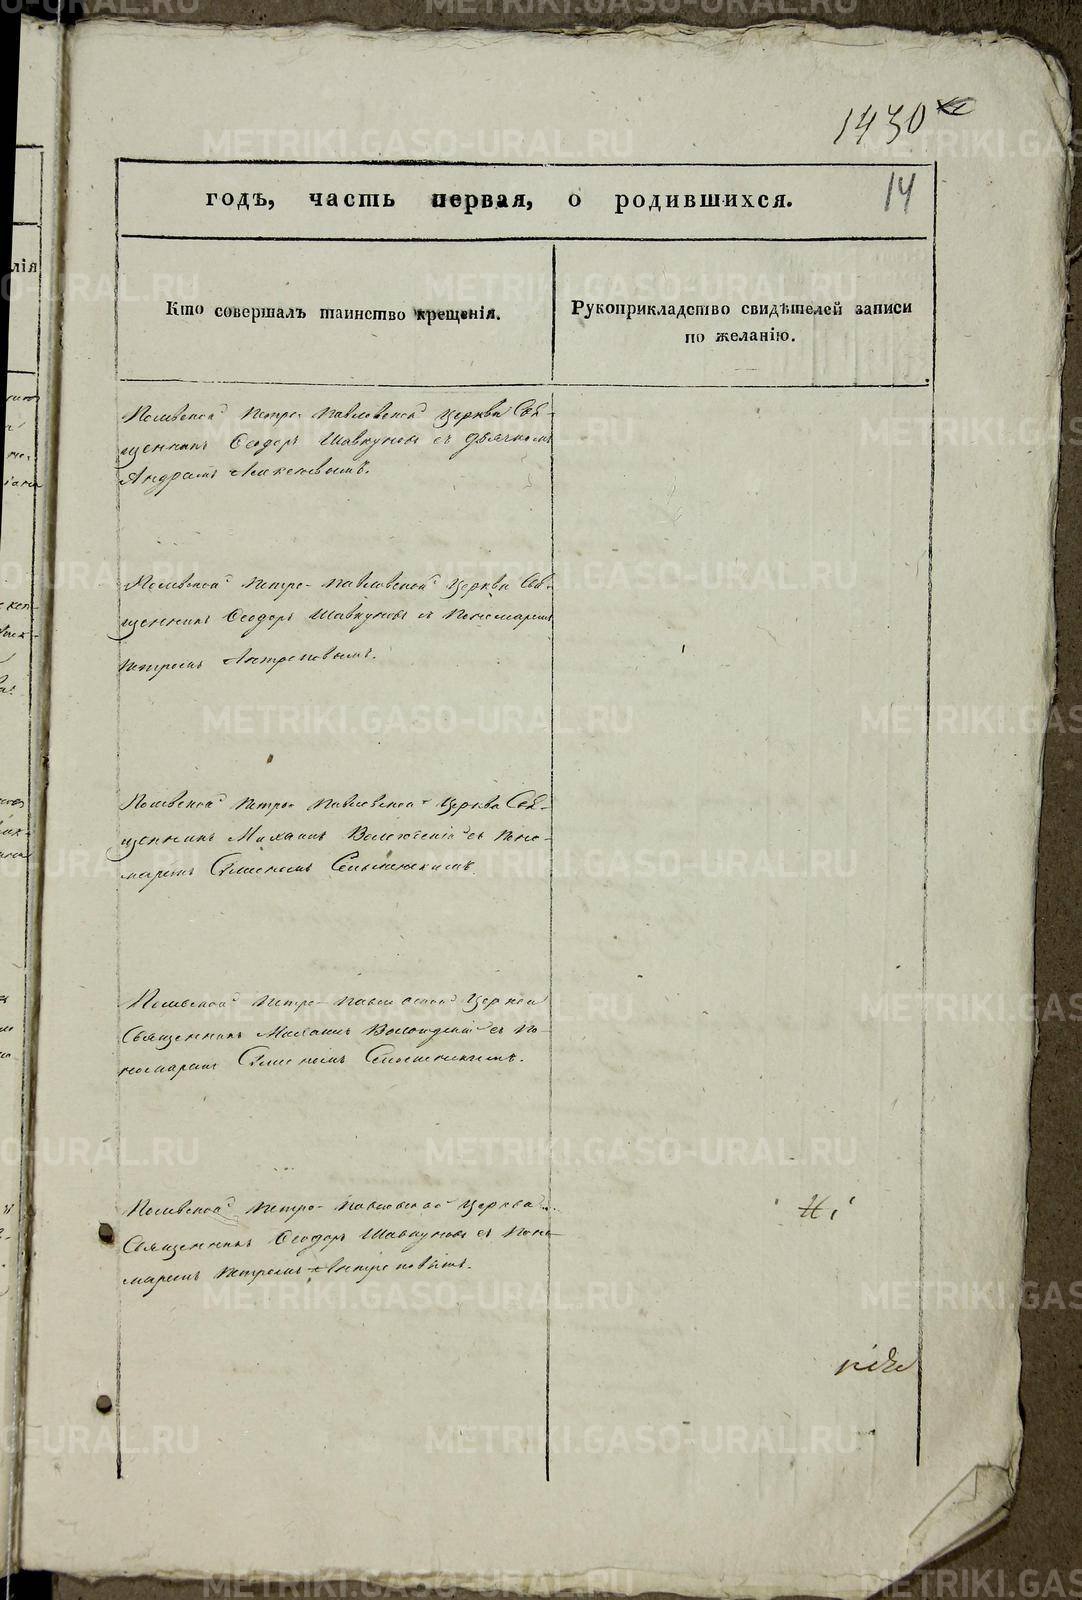 1430
14
годъ, часть первая, о родившихся.
Кто совершалъ таинство крещенія.
Рукоприкладство свидѣтелей записи
по желанію.
лія
Полевской Петро-Павловской Церкви Свя-
щенникъ Ѳеодоръ Шавкуновъ съ дьячкомъ
Андреемъ
Полевской Петро-Павловской Церкви Свя-
щенникъ Ѳеодоръ Шавкуновъ съ Пономаремъ
Петромъ Антроповымъ.
Полевской Петро-Павловской Церкви Свя-
щенникъ Михаилъ съ Поно-
маремъ Симеономъ
Полевской Петро-Павловской Церкви
Священникъ Михаилъ съ По-
номаремъ Симеономъ
Полевской Петро-Павловской Церкви
Священникъ Ѳеодоръ Шавкуновъ съ Поно-
маремъ Петромъ Антроповымъ.
METRIKI.GASO-URAL.RU